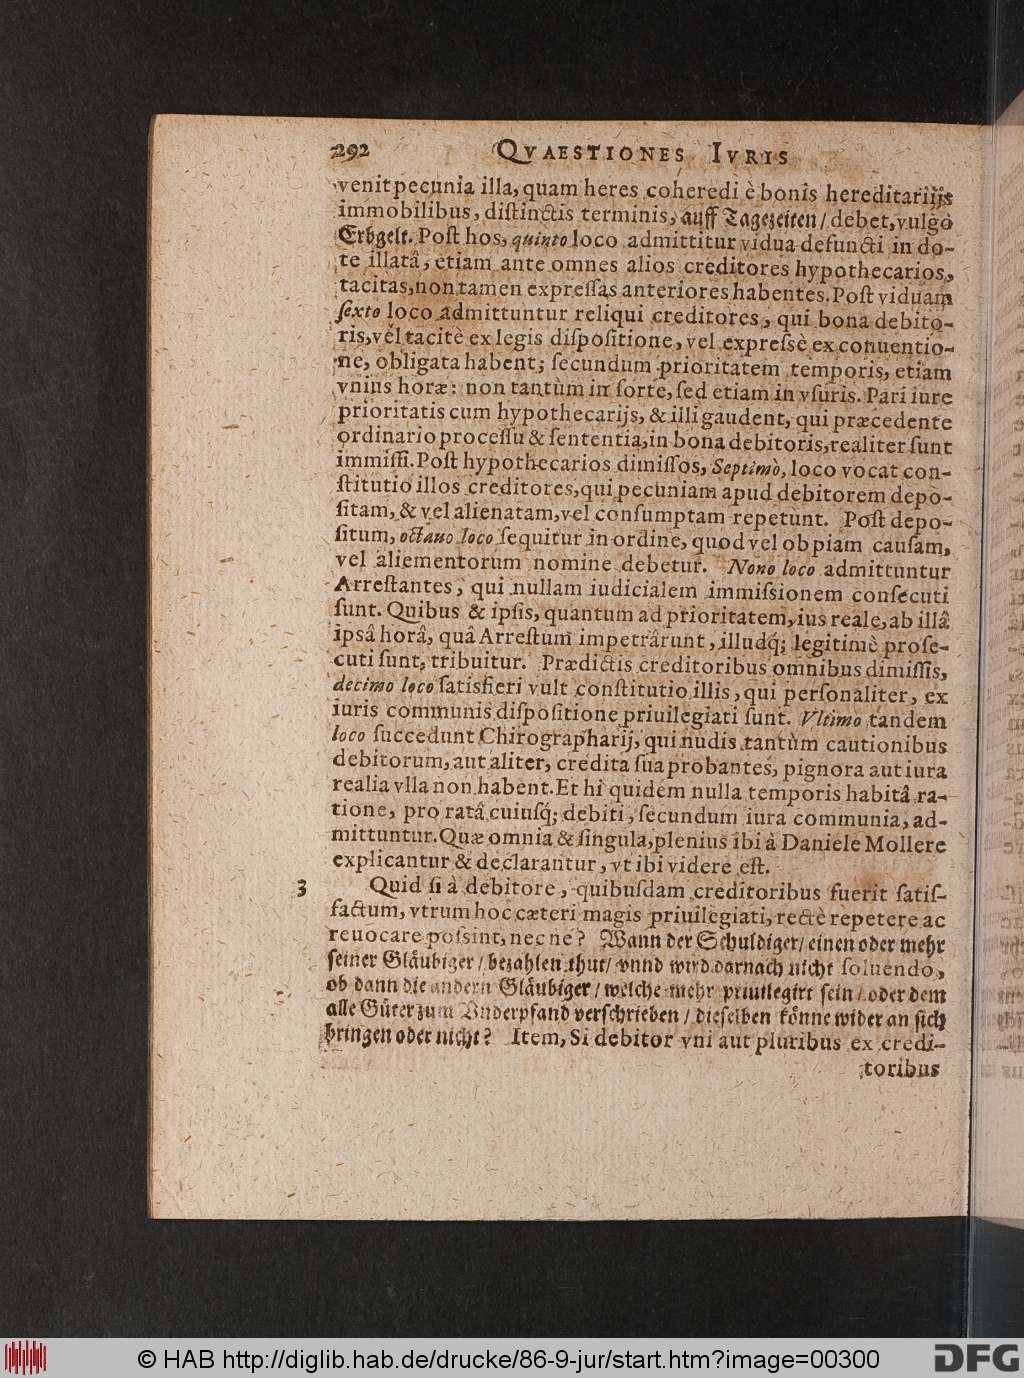 292 QVAESTIONES IVRIS
venit pecunia illa, quam heres coheredi è bonis hereditariijs
immobilibus, diſtinctis terminis, auff Tagezeiten/ debet, vulgò
Erbgelt. Poſt hos, quinto loco admittitur vidua defuncti in do-
te illatâ, etiam ante omnes alios creditores hypothecarios,
tacitas, non tamen expreſſas anteriores habentes. Poſt viduam
ſexto loco admittuntur reliqui creditores, qui bona debito-
ris, vel tacitè ex legis diſpoſitione, vel expreſsè ex conuentio-
ne, obligata habent; ſecundum prioritatem temporis, etiam
vnius horæ: non tantùm in ſorte, ſed etiam in vſuris. Pari iure
prioritatis cum hypothecarijs, & illi gaudent, qui præcedente
ordinario proceſſu & ſententia, in bona debitoris, realiter ſunt
immiſſi. Poſt hypothecarios dimiſſos, Septimò, loco vocat con-
ſtitutio illos creditores, qui pecuniam apud debitorem depo-
ſitam, & vel alienatam, vel conſumptam repetunt. Poſt depo-
ſitum, octauo loco ſequitur in ordine, quod vel ob piam cauſam,
vel aliementorum nomine debetur. Nono loco admittuntur
Arreſtantes, qui nullam iudicialem immiſsionem conſecuti
ſunt. Quibus & ipſis, quantum ad prioritatem, ius reale, ab illâ
ipsâ horâ, quâ Arreſtum impetrârunt, illudq́; legitimè proſe-
cuti ſunt, tribuitur. Prædictis creditoribus omnibus dimiſſis,
decimo loco ſatisfieri vult conſtitutio illis, qui perſonaliter, ex
iuris communis diſpoſitione priuilegiati ſunt. Vltimo tandem
loco ſuccedunt Chirographarij, qui nudis tantùm cautionibus
debitorum, aut aliter, credita ſua probantes, pignora aut iura
realia vlla non habent. Et hi quidem nulla temporis habitâ ra-
tione, pro ratâ cuiuſq́; debiti, ſecundum iura communia, ad-
mittuntur. Quæ omnia & ſingula, plenius ibi à Daniele Mollere
explicantur & declarantur, vt ibi videre eſt.
3 Quid ſi à debitore, quibuſdam creditoribus fuerit ſatiſ-
factum, vtrum hoc cæteri magis priuilegiati, rectè repetere ac
reuocare poſsint, nec ne? Wann der Schuldiger/ einen oder mehr
ſeiner Glåubiger/ bezahlen thut/ vnnd wird darnach nicht ſoluendo,
ob dann die andern Glåubiger/ welche mehr priuilegirt ſein/ oder dem
alle Gůter zum Vnderpfand verſchrieben/ dieſelben kőnne wider an ſich
bringen oder nicht? Item, Si debitor vni aut pluribus ex credi-
toribus
© HAB http://diglib.hab.de/drucke/86-9-jur/start.htm?image=00300
DFG